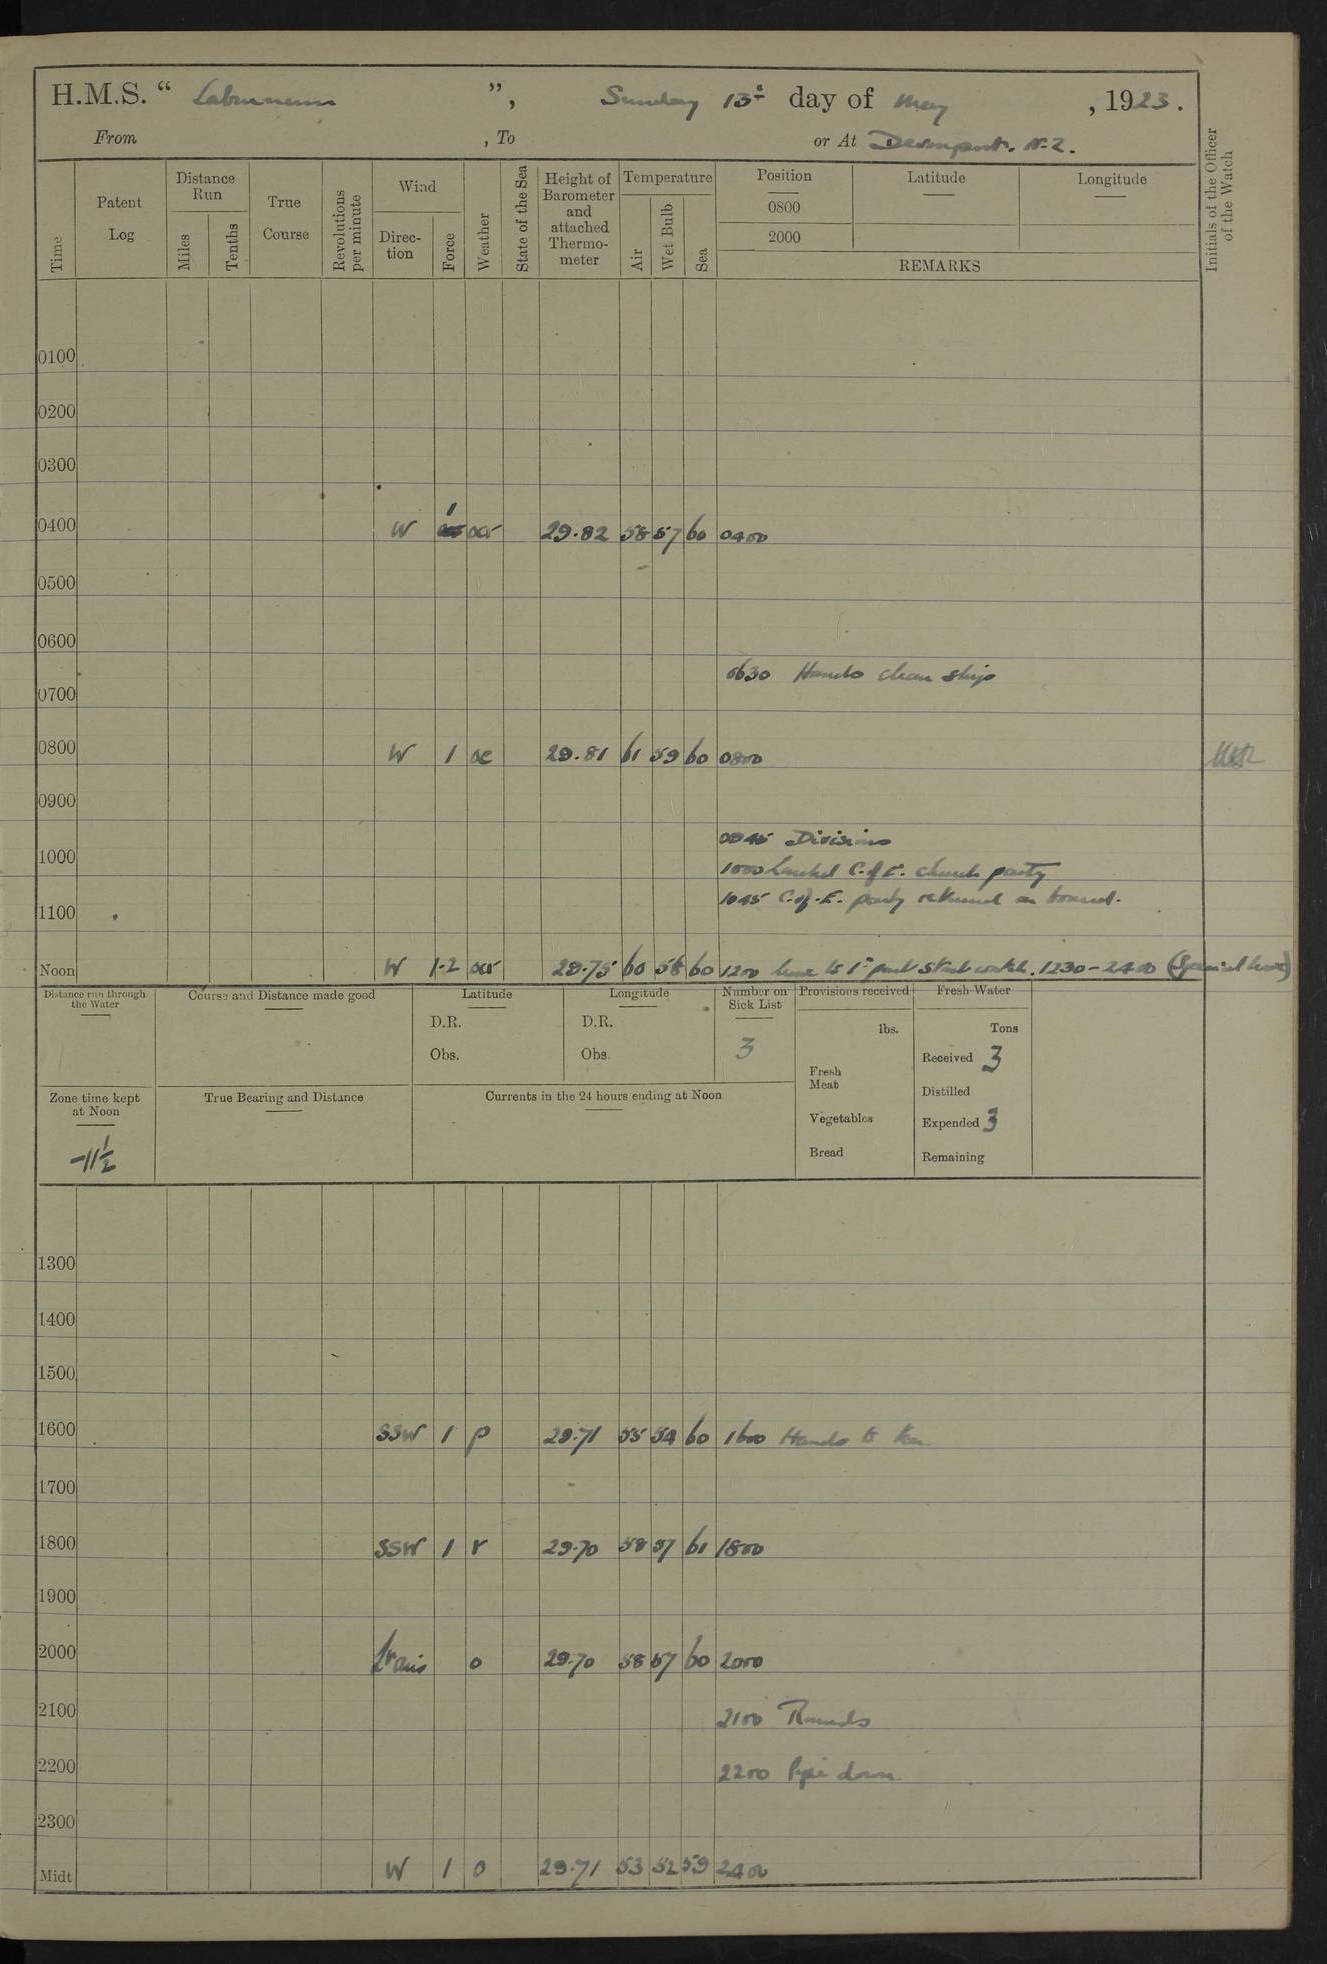 H.M.S. “ Laburnum ”, Sunday 13th day of May, 1923.
From , To or At Devonport. N.Z.
Time
Patent Log
Distance Run
Miles
Tenths
True Course
Revolutions per minute
Wind
Direc-tion
Force
Weather
State of the Sea
Height of Barometer and attached Thermo-meter
Temperature
Air
Wet Bulb
Sea
Position
0800
2000
Latitude
Longitude
REMARKS
Initials of the Officer of the Watch
0100
0200
0300
0400 W 1 29.82 58 57 60 0400
0500
0600
0630 Hands clean ship
0700
0800 W 1 oc 29.81 61 59 60 0800
0900
0945 Divisions
1000 Landed C.of E. church party
1045 C.of.E. party returned on board.
1000
1100
Noon W 1-2 29.75 60 58 60 1200 Leave to 1st part Starb watch. 1230-2400 (Special leave)
Distance run through the Water
Course and Distance made good
Latitude
D.R.
Obs.
Longitude
D.R.
Obs.
Number on Sick List
3
Provisions received
lbs.
Fresh Meat
Vegetables
Bread
Fresh Water
Tons
Received 3
Distilled
Expended 3
Remaining
Zone time kept at Noon
-11½
True Bearing and Distance
Currents in the 24 hours ending at Noon
1300
1400
1500
1600 SSW 1 p 29.71 55 54 60 1600 Hands to tea
1700
1800 SSW 1 r 29.70 58 57 61 1800
1900
2000 o 29.70 58 57 60 2000
2100 2100 Rounds
2200 2200 Pipe down
2300
Midt W 1 o 29.71 53 52 59 2400